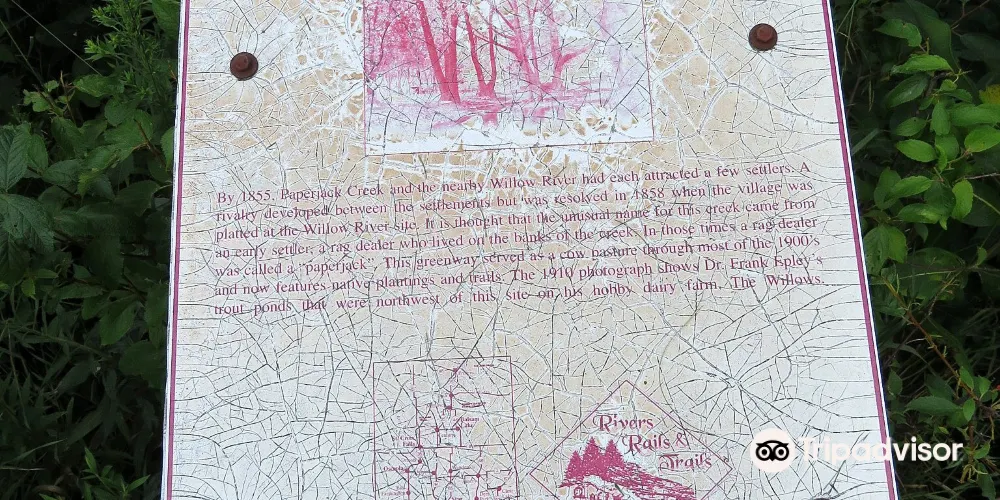 By 1855, Paperjack Creek and the nearby Willow River had each attracted a few settlers. A
rivalry developed between the settlements but was resolved in 1858 when the village was
platted at the Willow River site. It is thought that the unusual name for this creek came from
an early settler, a rag dealer who lived on the banks of the creek. In those times a rag dealer
was called a "paperjack". This greenway served as a cow pasture through most of the 1900's
and now features native plantings and trails. The 1910 photograph shows Dr. Frank Epley's
trout ponds that were northwest of this site on his hobby dairy farm, The Willows.
Rivers
Rails &
Trails
Tripadvisor